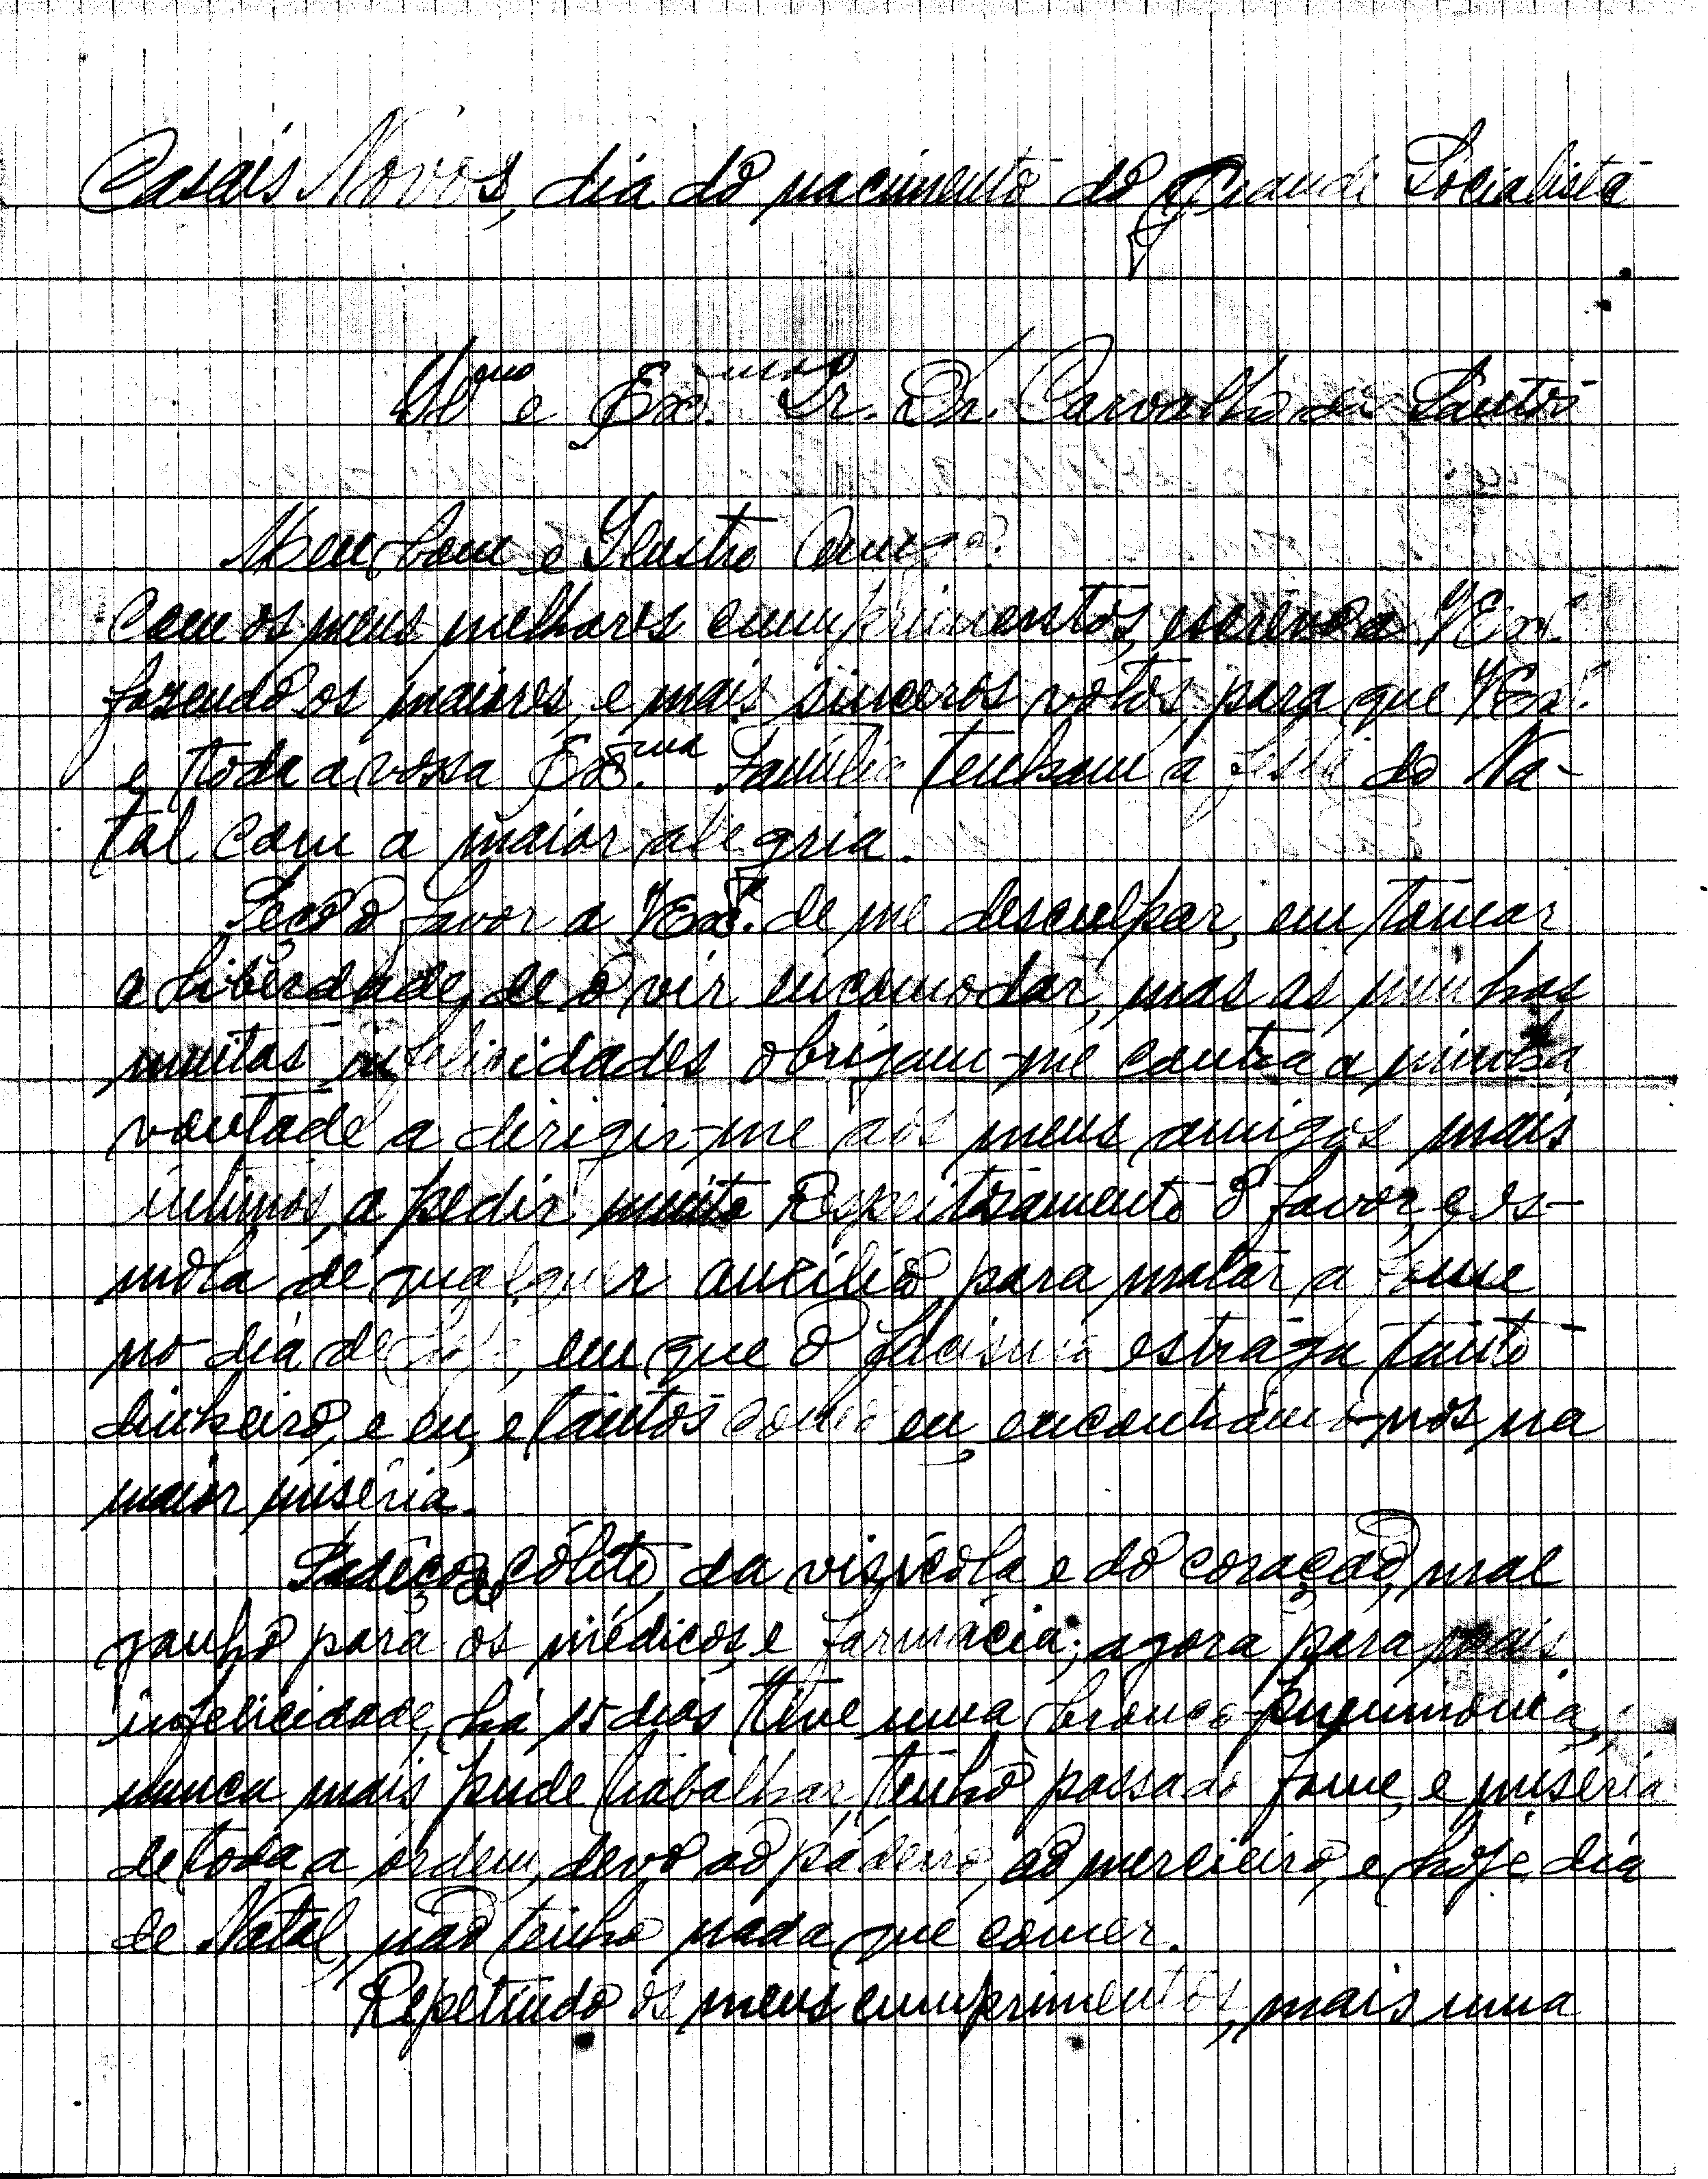 Casais Novos, dia do nacimento do Grande Socialista
Ilmo e Exmo Sr. Dr. Carvalho dos Santos
Meu bom e Ilustre Amigo
Com os meus melhores cumprimentos, escrevo a VExª.
fazendo os maiores, e mais sinceros votos, para que VExª.
e toda a vossa Exma Familia tenham a festa do Na-
tal com a maior alegria.
Peço o favor a VExª. de me desculpar, em tomar
a liberdade, de o vir encomodar, mas as minhas
muitas infelicidades obrigam-me contra a minha
vontade a dirigir-me aos meus amigos mais
intimos, a pedir muito Respeitosamente o favor, e es-
mola de qualquer auxilio, para matar a fome
no dia de hoje, em que o facismo estraga tanto
dinheiro, e eu, e tantos como eu, encontramo-nos, na
maior miséria.
Padeço de cólite, da visicola e do coração, mal
ganho para os médicos, e farmácia; agora para mais
infelicidade, há 15 dias tive uma bronco-pneumonia,
nunca mais pude trabalhar, tenho passado fome, e miséria
de toda a ordem, devo ao padeiro, ao mercieiro, e hoje dia
de Natal, não tenho nada que comer.
Repetindo os meus cumprimentos, mais uma